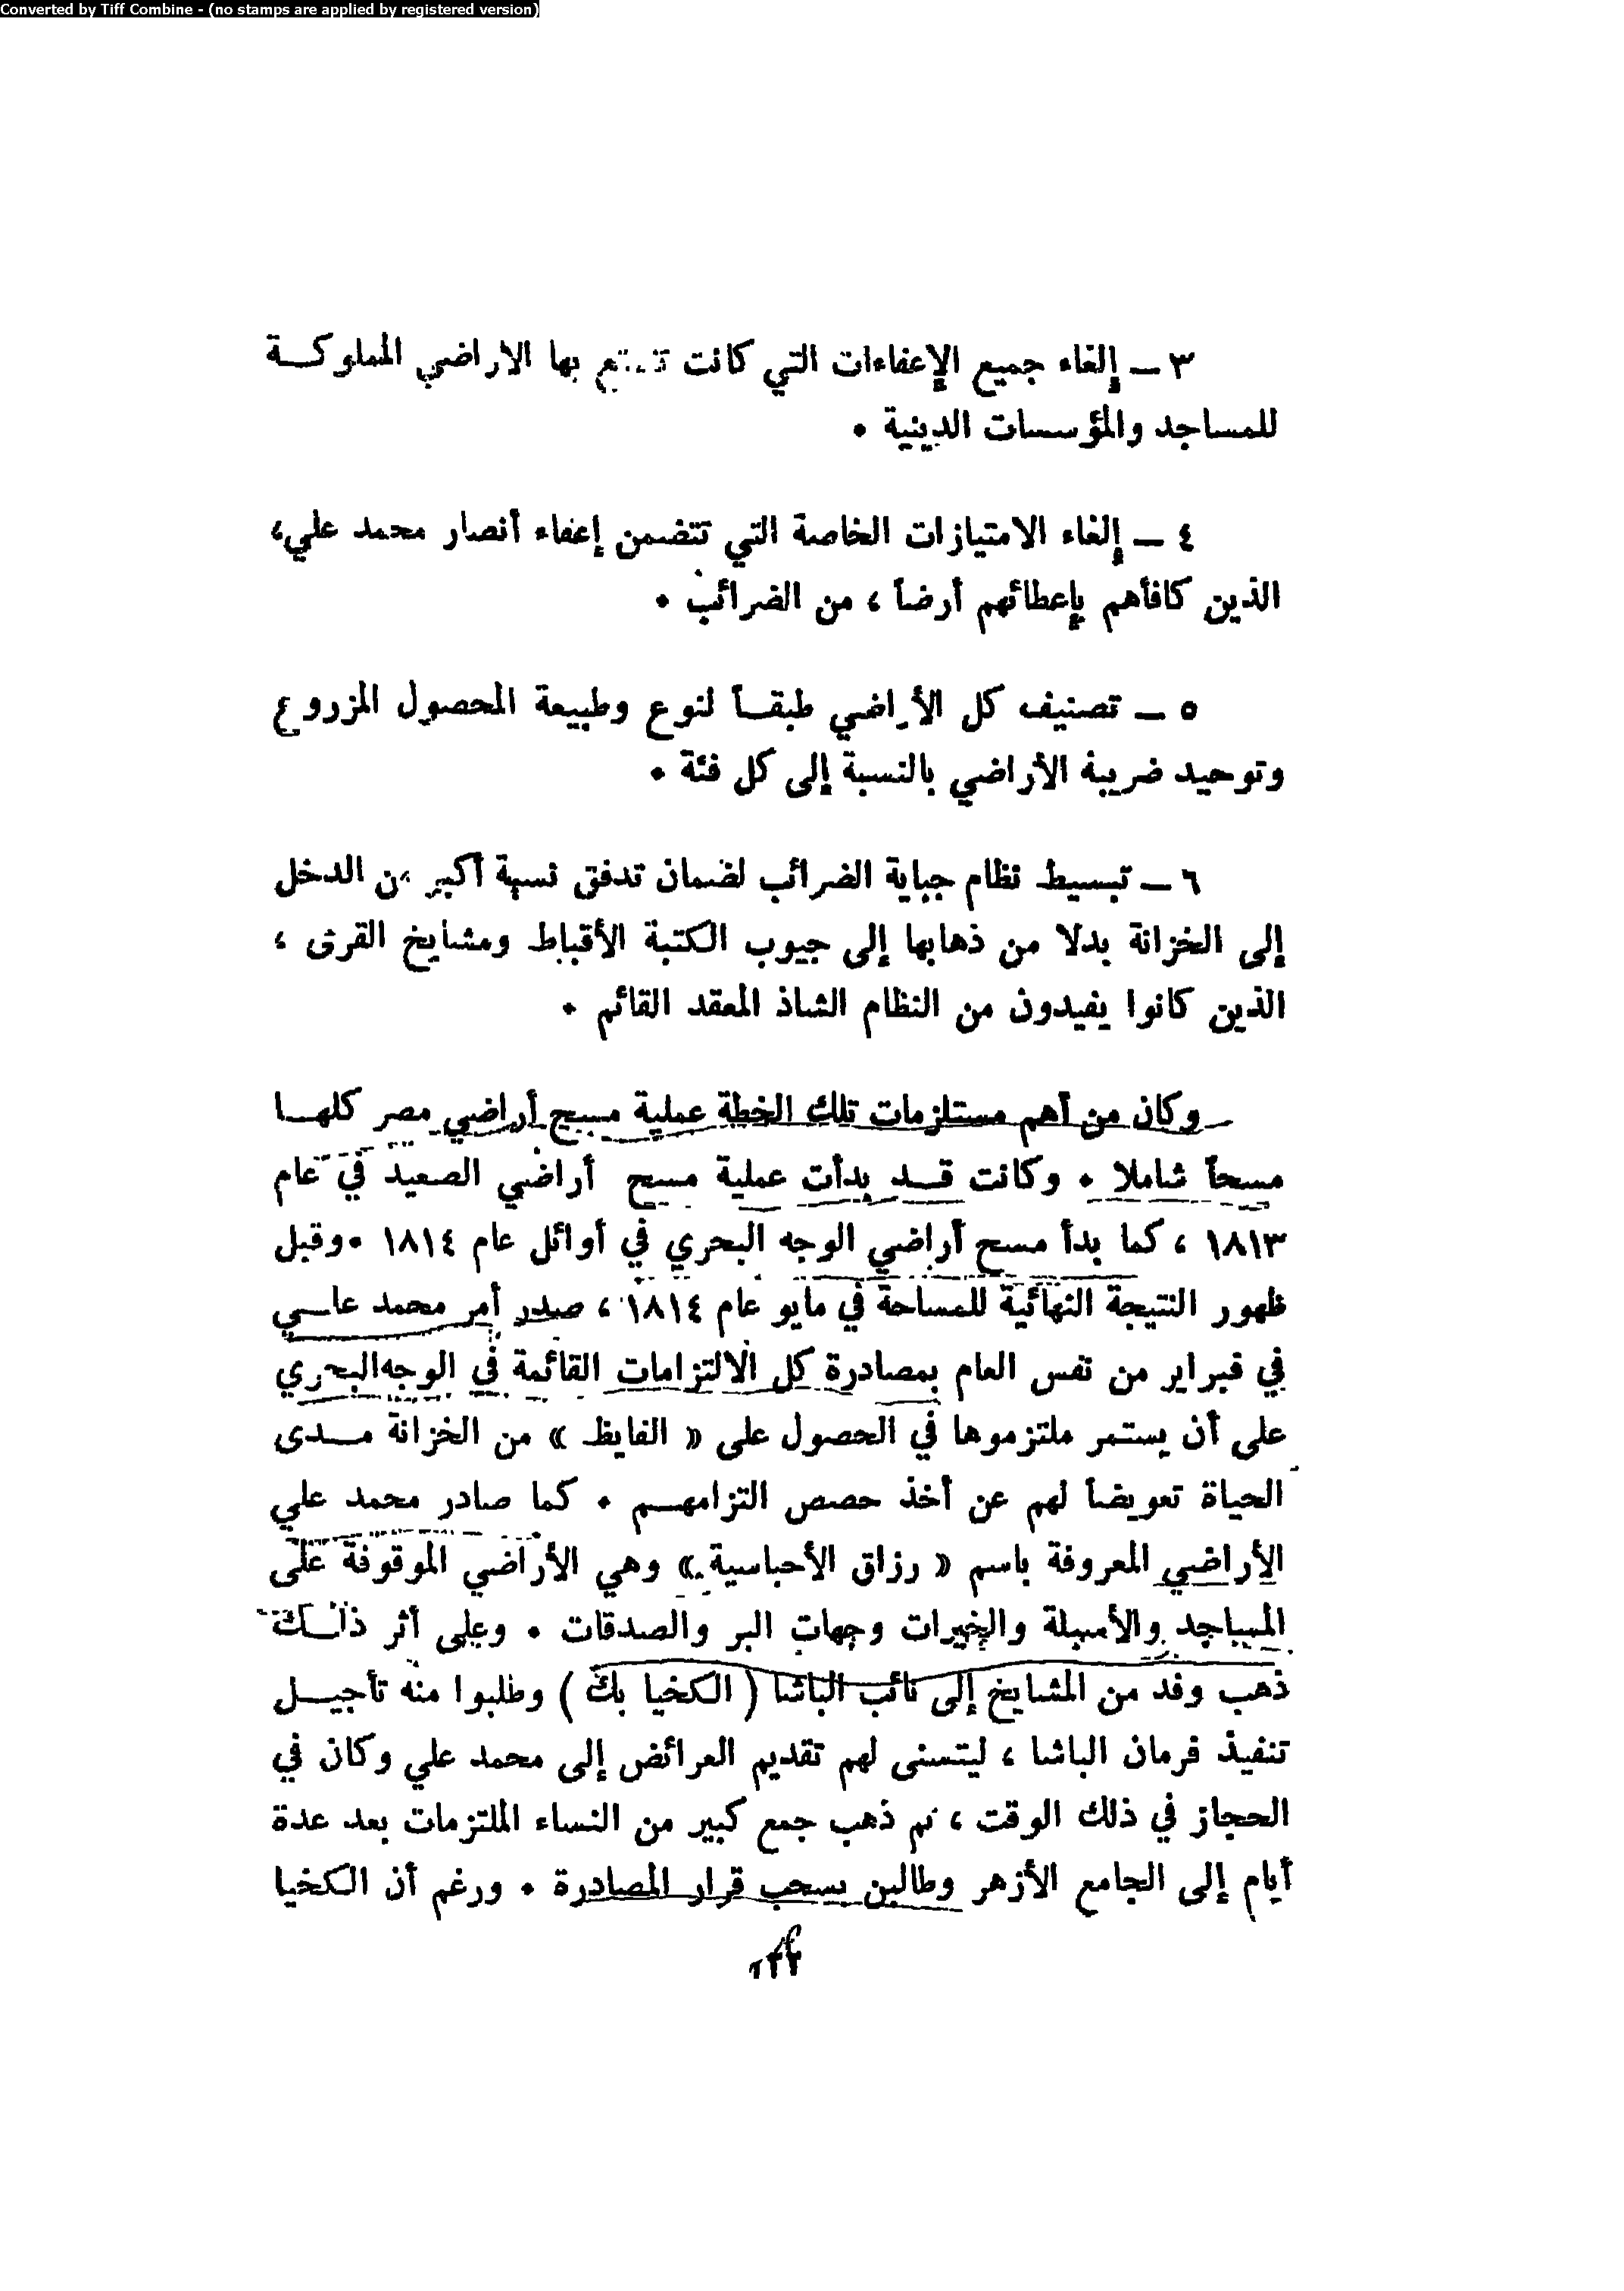 Converted by Tiff Combine - (no stamps are applied by registered version)
٣ – إلغاء جميع الإعفاءات التي كانت تتمتع بها الاراضي المملوكـة
للمساجد والمؤسسات الدينية •
٤ – إلغاء الامتيازات الخاصة التي تتضمن إعفاء أنصار محمد علي،
الذين كافأهم بإعطائهم أرضاً ، من الضرائب •
٥ – تصنيف كل الأراضي طبقـاً لنوع وطبيعة المحصول المزروع
وتوحيد ضريبة الأراضي بالنسبة إلى كل فئة •
٦ – تبسيط نظام جباية الضرائب لضمان تدفق نسبة أكبر من الدخل
إلى الخزانة بدلا من ذهابها إلى جيوب الكتبة الأقباط ومشايخ القرى ،
الذين كانوا يفيدون من النظام الشاذ المعقد القائم •
وكان من أهم مستلزمات تلك الخطة عملية مسح أراضي مصر كلهـا
مسحاً شاملا • وكانت قـد بدأت عملية مسح أراضي الصعيد في عام
١٨١٣ ، كما بدأ مسح أراضي الوجه البحري في أوائل عام ١٨١٤ •وقبل
ظهور النتيجة النهائية للمساحة في مايو عام ١٨١٤ ، صدر أمر محمد علـي
في فبراير من نفس العام بمصادرة كل الالتزامات القائمة في الوجه البحري
على أن يستمر ملتزموها في الحصول على « الفايظ » من الخزانة مـدى
الحياة تعويضاً لهم عن أخذ حصص التزامهـم • كما صادر محمد علي
الأراضي المعروفة باسم « رزاق الأحباسية » وهي الأراضي الموقوفة على
المساجد والأسبلة والخيرات وجهات البر والصدقات • وعلى أثر ذلـك
ذهب وفد من المشايخ إلى نائب الباشا ( الكخيا بك ) وطلبوا منه تأجيـل
تنفيذ فرمان الباشا ، ليتسنى لهم تقديم العرائض إلى محمد علي وكان في
الحجاز في ذلك الوقت ، ثم ذهب جمع كبير من النساء الملتزمات بعد عدة
أيام إلى الجامع الأزهر وطالبن بسحب قرار المصادرة • ورغم أن الكخيا